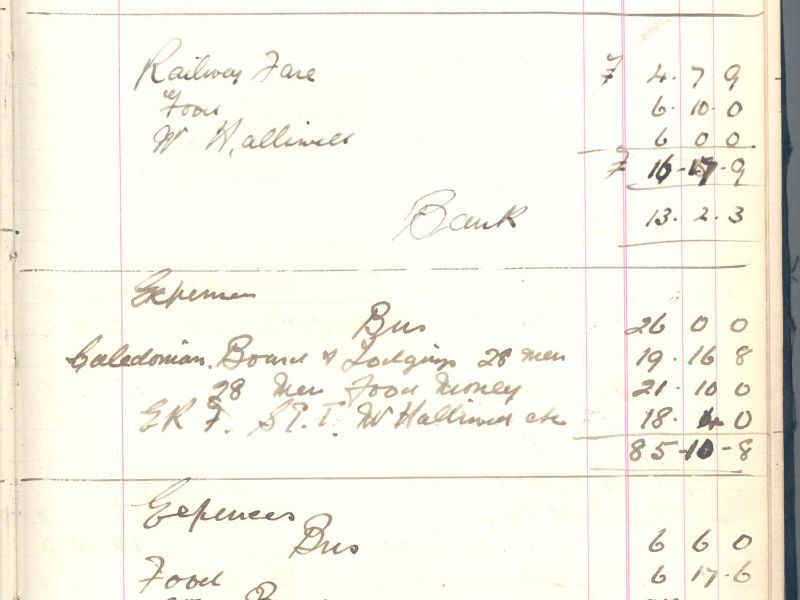 Railway Fare £ 4. 7 9
Food 6. 10. 0
W Halliwell 6 0 0
£ 16-17-9
Bank 13. 2. 3
Expenses
Bus 26 0 0
Caledonian. Board & Lodgings 28 men 19. 16 8
28 Men Food money 21. 10 0
W Halliwell etc 18. 4 0
85-10-8
Expences
Bus 6 6 0
Food 6 17.6